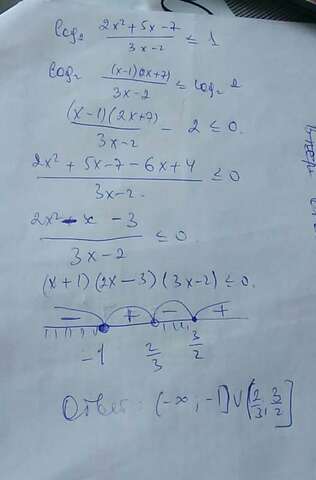 log₂ (2x² + 5x - 7)/(3x - 2) ≤ 1
log₂ ((x-1)(2x+7))/(3x-2) ≤ log₂ 2
((x-1)(2x+7))/(3x-2) - 2 ≤ 0.
(2x² + 5x - 7 - 6x + 4)/(3x-2) ≤ 0
(2x² - x - 3)/(3x - 2) ≤ 0
(x+1)(2x-3)(3x-2) ≤ 0.
- + - +
-1 2/3 3/2
Ответ: (-∞; -1] ∪ (2/3; 3/2]